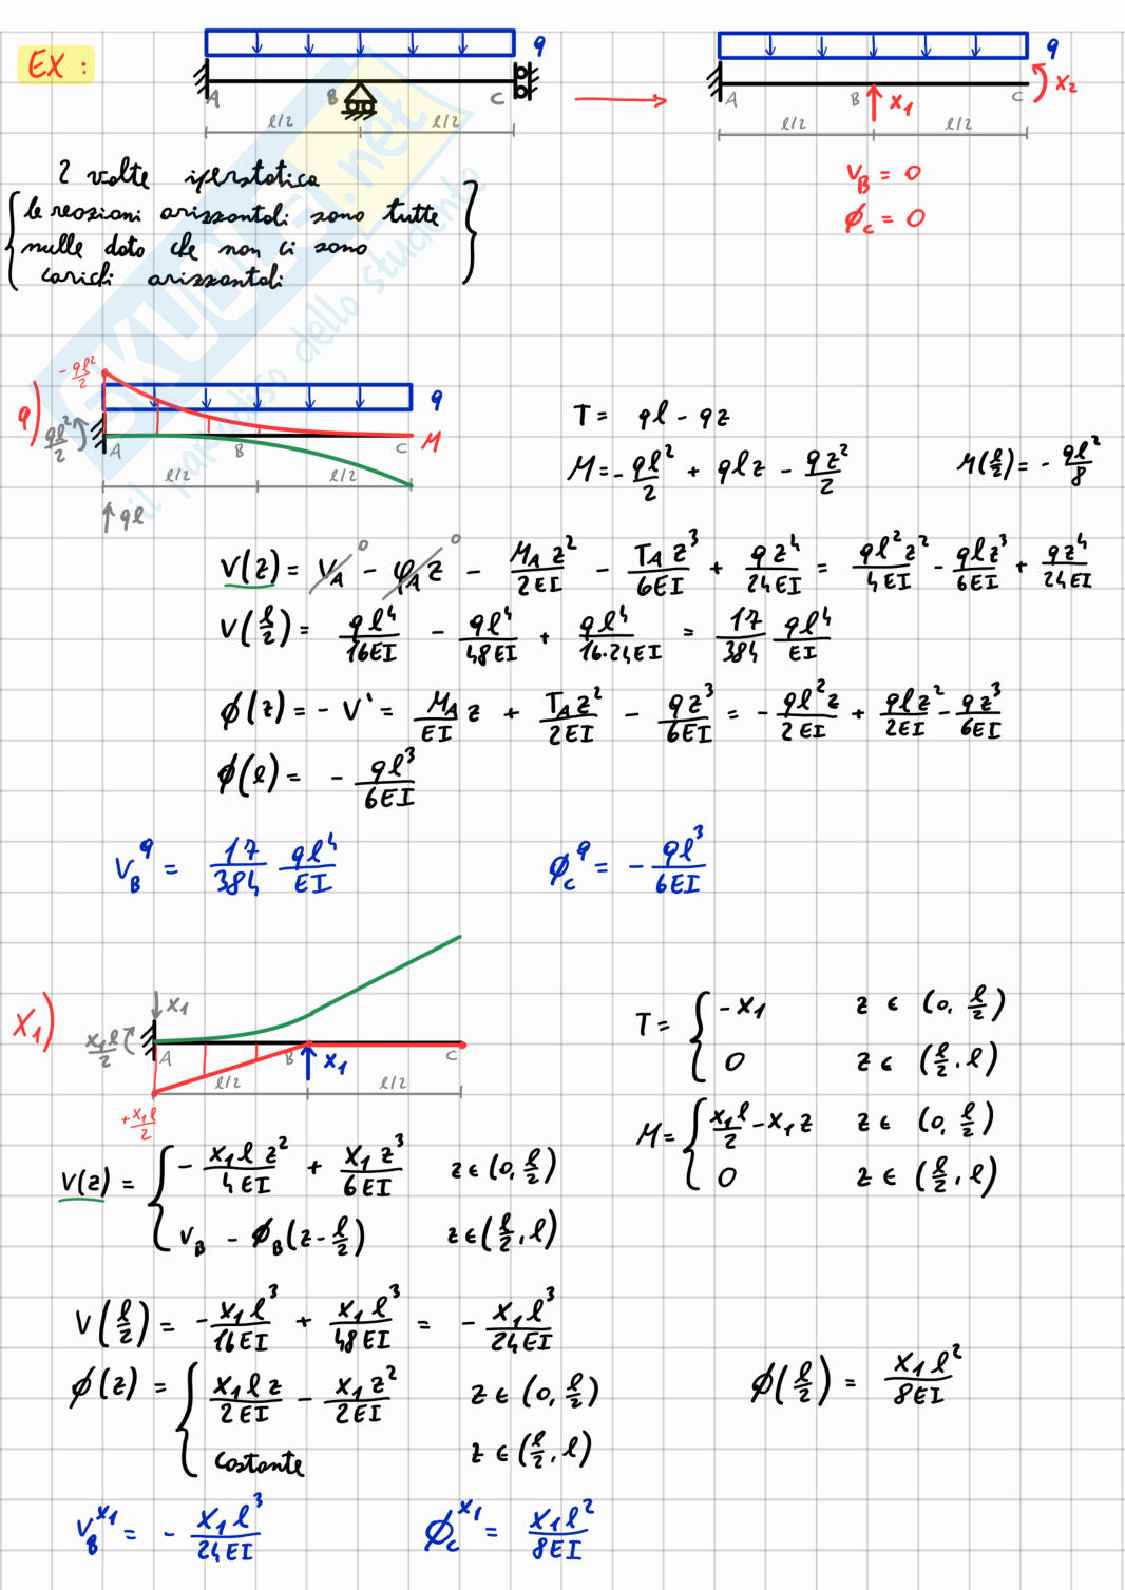 EX :
q
A B C
l/2 l/2
q
A B C
X1 X2
l/2 l/2
2 volte iperstatica
le reazioni orizzontali sono tutte
nulle dato che non ci sono
carichi orizzontali
vB = 0
ϕC = 0
SKUOLA.net
il paradiso dello studente
q)
- ql²/2
ql²/2
q
A B C M
l/2 l/2
ql
T = ql - qz
M = - ql²/2 + qlz - qz²/2
M(l/2) = - ql²/8
v(z) = vA⁰ - φA z⁰ - MA z²/2EI - TA z³/6EI + qz⁴/24EI = ql²z²/4EI - qlz³/6EI + qz⁴/24EI
v(l/2) = ql⁴/16EI - ql⁴/48EI + ql⁴/16·24EI = 17/384 ql⁴/EI
ϕ(z) = - v' = MA/EI z + TA z²/2EI - qz³/6EI = - ql²z/2EI + qlz²/2EI - qz³/6EI
ϕ(l) = - ql³/6EI
vB^q = 17/384 ql⁴/EI
ϕC^q = - ql³/6EI
X1)
X1
X1l/2
A B C
X1
l/2 l/2
+X1l/2
T = { -X1 z ∈ (0, l/2)
0 z ∈ (l/2, l)
M = { X1l/2 - X1z z ∈ (0, l/2)
0 z ∈ (l/2, l)
v(z) = { - X1l z²/4EI + X1z³/6EI z ∈ (0, l/2)
vB - ϕB(z - l/2) z ∈ (l/2, l)
v(l/2) = - X1l³/16EI + X1l³/48EI = - X1l³/24EI
ϕ(z) = { X1lz/2EI - X1z²/2EI z ∈ (0, l/2)
costante z ∈ (l/2, l)
ϕ(l/2) = X1l²/8EI
vB^X1 = - X1l³/24EI
ϕC^X1 = X1l²/8EI